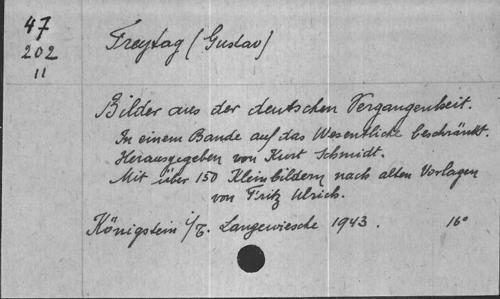 47
202
11
Freytag (Gustav)
Bilder aus der deutschen Vergangenheit.
In einem Bande auf das Wesentliche beschränkt.
Herausgegeben von Kurt Schmidt.
Mit über 150 Kleinbildern nach alten Vorlagen
von Fritz Ulrich.
Königstein i/T. Langewiesche 1943. 16°